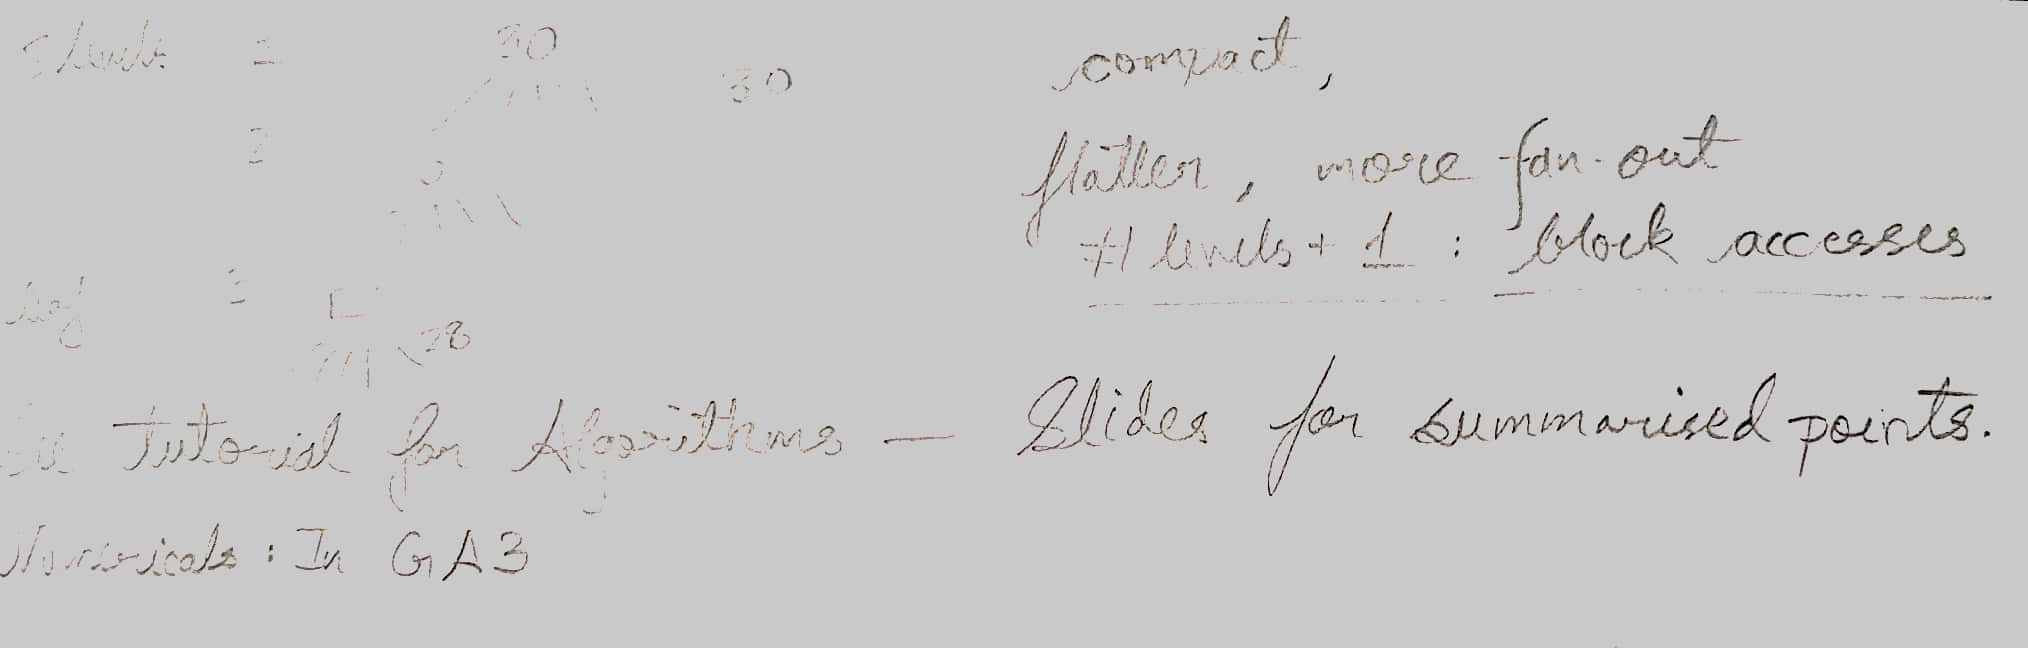 3 levels 1 30 30 compact,
2 flatter, more fan-out
# levels + 1 : block accesses
leaf 3 28
Tutorial for Algorithms — Slides for summarised points.
Numericals : In GA3